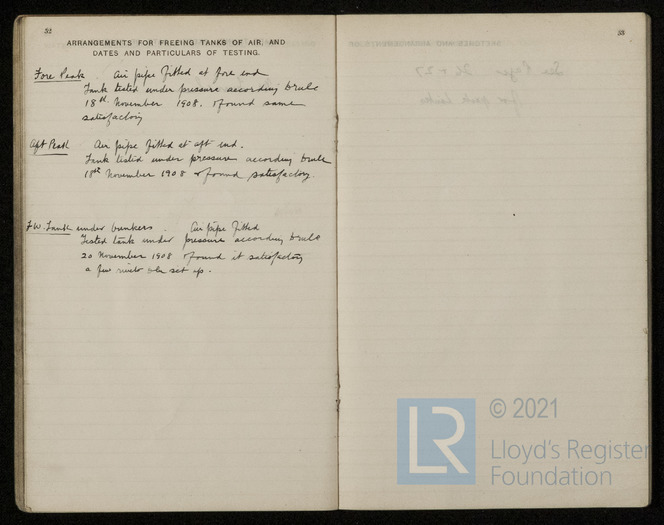 52
ARRANGEMENTS FOR FREEING TANKS OF AIR, AND
DATES AND PARTICULARS OF TESTING.
Fore Peak Air pipe fitted at fore end
Tank tested under pressure according to rule
18th November 1908. & found same
satisfactory
Aft Peak Air pipe fitted at aft end.
Tank tested under pressure according to rule
18th November 1908 & found satisfactory.
F.W. Tank under bunkers. Air pipe fitted
Tested tank under pressure according to rule
20 November 1908 & found it satisfactory
a few rivets to be set up.
53
See Page 26 & 27
for peak tanks
LR
© 2021
Lloyd's Register
Foundation